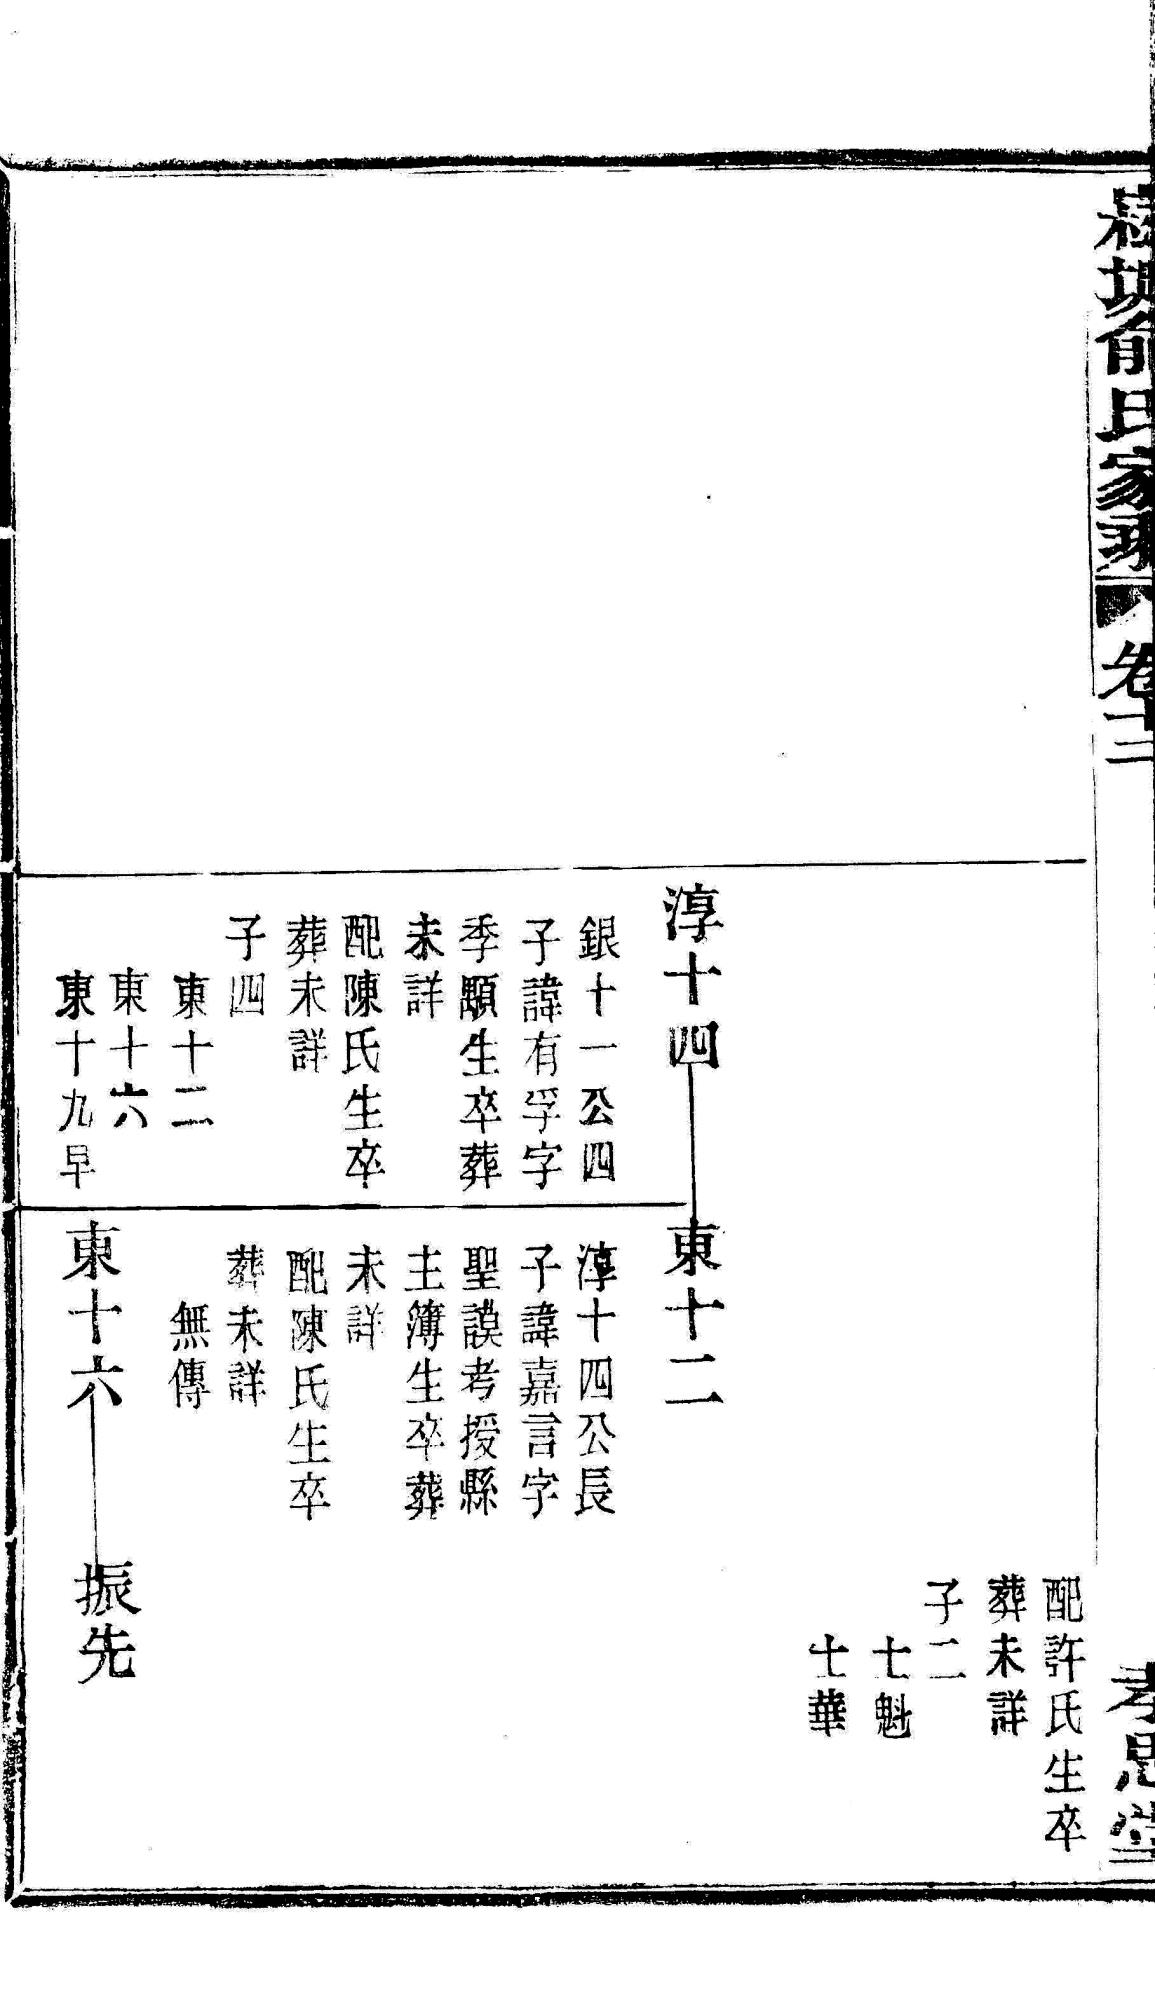 俞氏家
卷十三
孝思堂
配許氏生卒
葬未詳
子二
七魁
七華
淳十四
銀十一公四
子諱有孚字
季顒生卒葬
未詳
配陳氏生卒
葬未詳
子四
東十二
東十六
東十九早
東十二
淳十四公長
子諱嘉言字
聖謨考授縣
主簿生卒葬
未詳
配陳氏生卒
葬未詳
無傳
東十六
振先